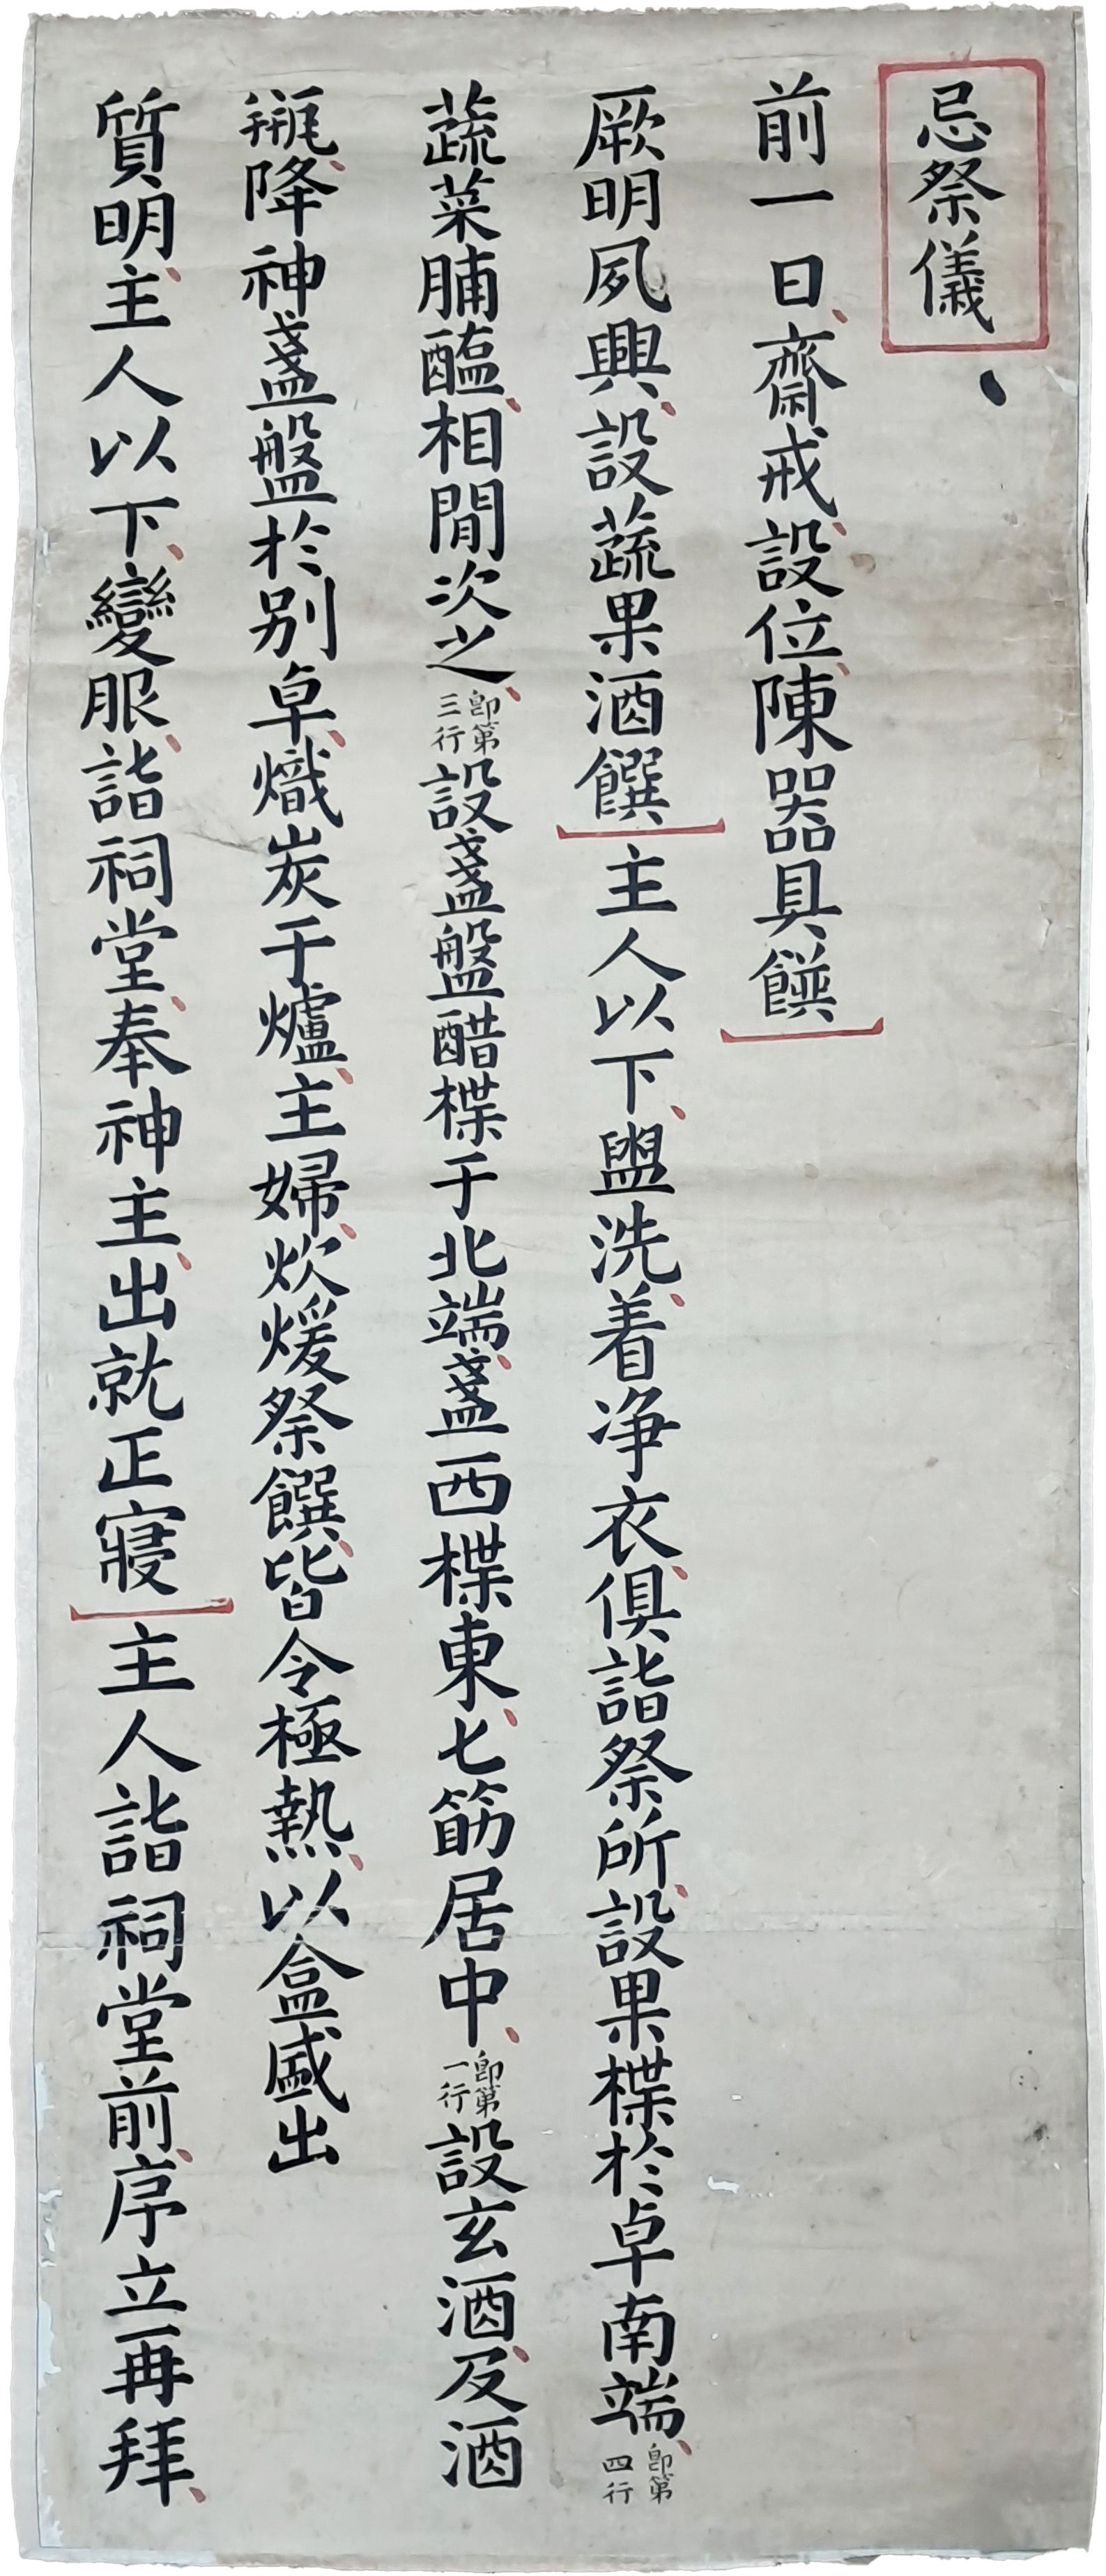 忌祭儀
前一日齋戒設位陳器具饌
厥明夙興設蔬果酒饌主人以下盥洗着净衣俱詣祭所設果楪於卓南端即第四行
蔬菜脯醢相間次之即第三行設盞盤醋楪于北端盞西楪東匕筯居中即第一行設玄酒及酒
瓶降神盞盤於别卓熾炭于爐主婦炊煖祭饌皆令極熱以盒盛出
質明主人以下變服詣祠堂奉神主出就正寢主人詣祠堂前序立再拜